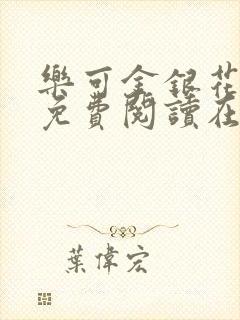 樂可金銀花
免費閱讀在
葉偉宏